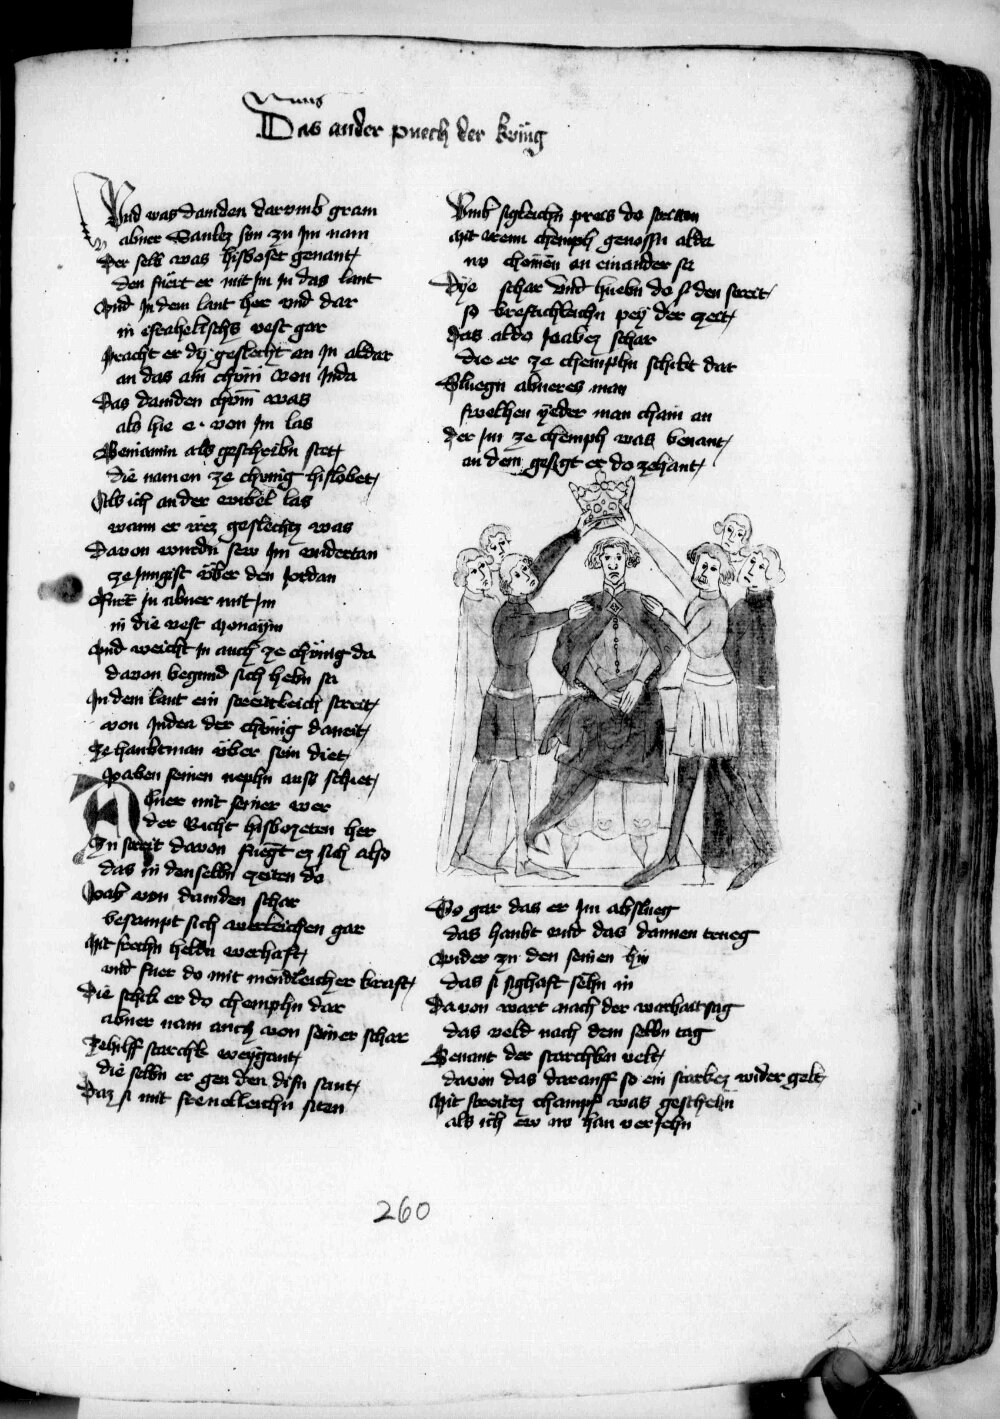 Das ander puech der kunig
Vnd was dauiden darvmb gram
abner Saulez sun zu Im nam
Der selb was hisboset genant
den fuert er mit Im In das lant
Vnd In dem lant her vnd dar
in israhelischs vest gar
Pracht er dy geslecht an In aldar
an das ain chom von Juda
Das dauiden chom was
als hie e von Im las
Beniamin als geschribn stet
die namen ze chunig hisbobet
Als ich an der wibel las
wann er irez geslechtz was
Dauon wurdn sew Im vndertan
ze Jungist über den Jordan
Fuert In abner mit Im
in die vest monaym
Vnd weicht In auch ze chünig da
dauon begund sich hebn sa
In dem lant ein streitleich streit
von Judea der chünig daueit
Ze haubtman über sein diet
Joaben seinen nephn auss schiet
Abner mit seiner wer
der Richt hisbozeten her
In streit dauon fuegt ez sich also
das in denselbn zeiten do
Joab von dauiden schar
besampt sich gar
Mit frechn heldn werhaft
vnd fuer do mit mendleicher kraft
Die schik er do chemphn dar
abner nam auch von seiner schar
Zehilff starchk weygant
die selbn er gen den disn sant
Daz si mit siten
Vmb sigleichn preis do striten
Mit irem chemph genossn alda
nv chomen an einander sa
Dye schar vnd huebn do si den streit
so kreftichleichn pey der zeit
Das aldo Joabez schar
die er ze chemphn schikt dar
Sluegn abneres man
swelhen yeder man cham an
der Im ze chemph was benant
an dem gesigt er do zehant
So gar das er Im abslueg
das haubt vnd das dannen trueg
Wider zu den seinen hin
das si sighaft sehn in
Dauon wart nach der warhait sag
das veld nach dem selbn tag
Benant der starchkn velt
dauon das darauff so ein starkez wider gelt
Mit streitez champf was geschehn
als ich ew nv han veriehn
260